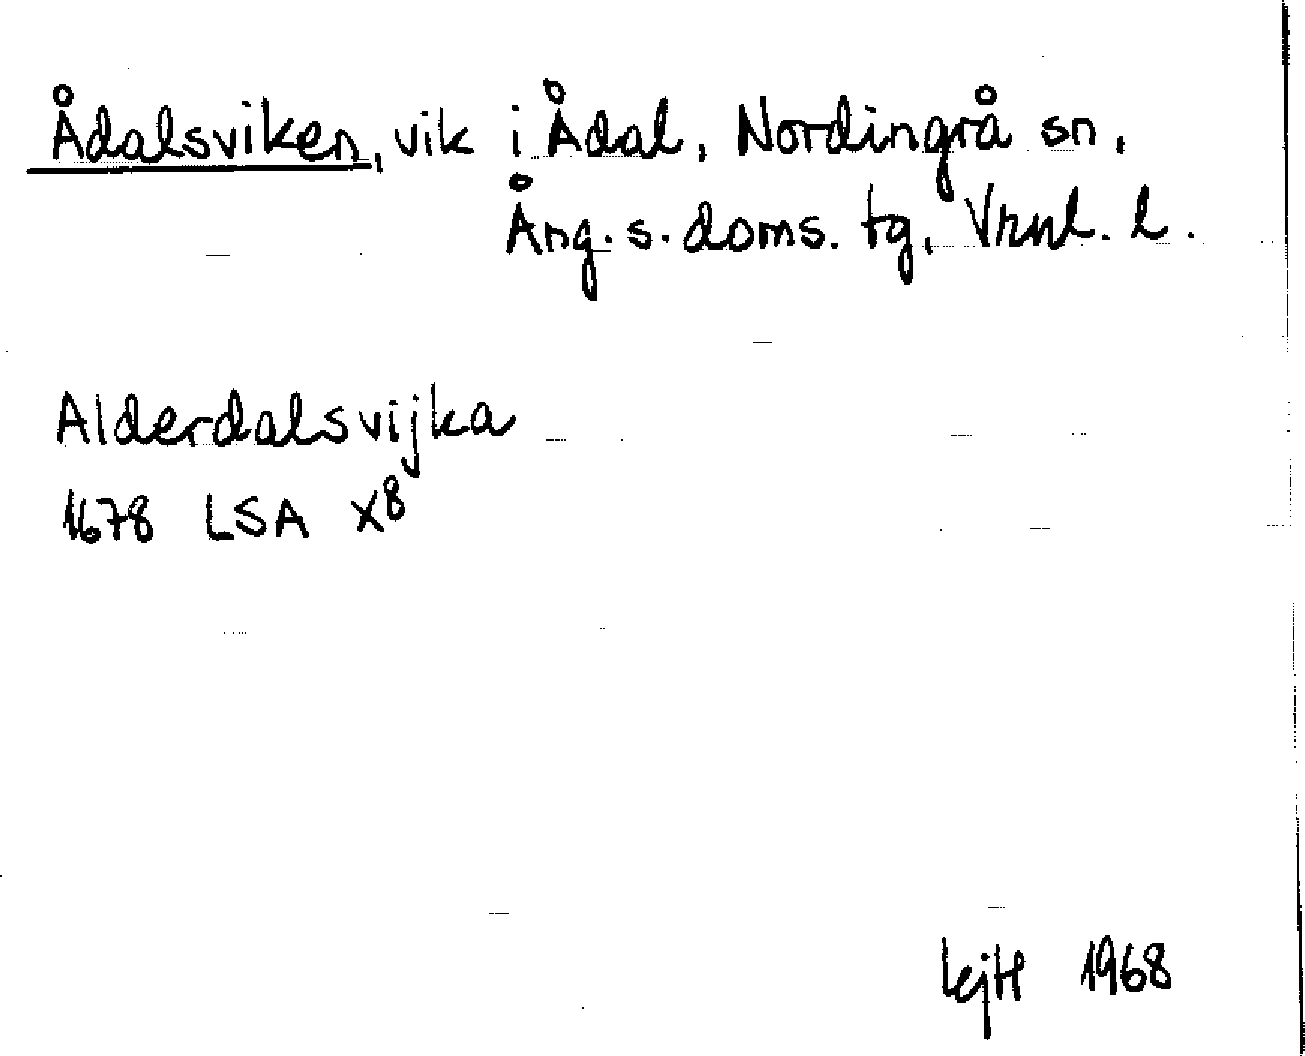 Ådalsviken, vik i Ådal, Nordingrå sn,
Ång. s. doms. tg, Vrnl. l.
Alderdalsvijka
1678 LSA X8
1968